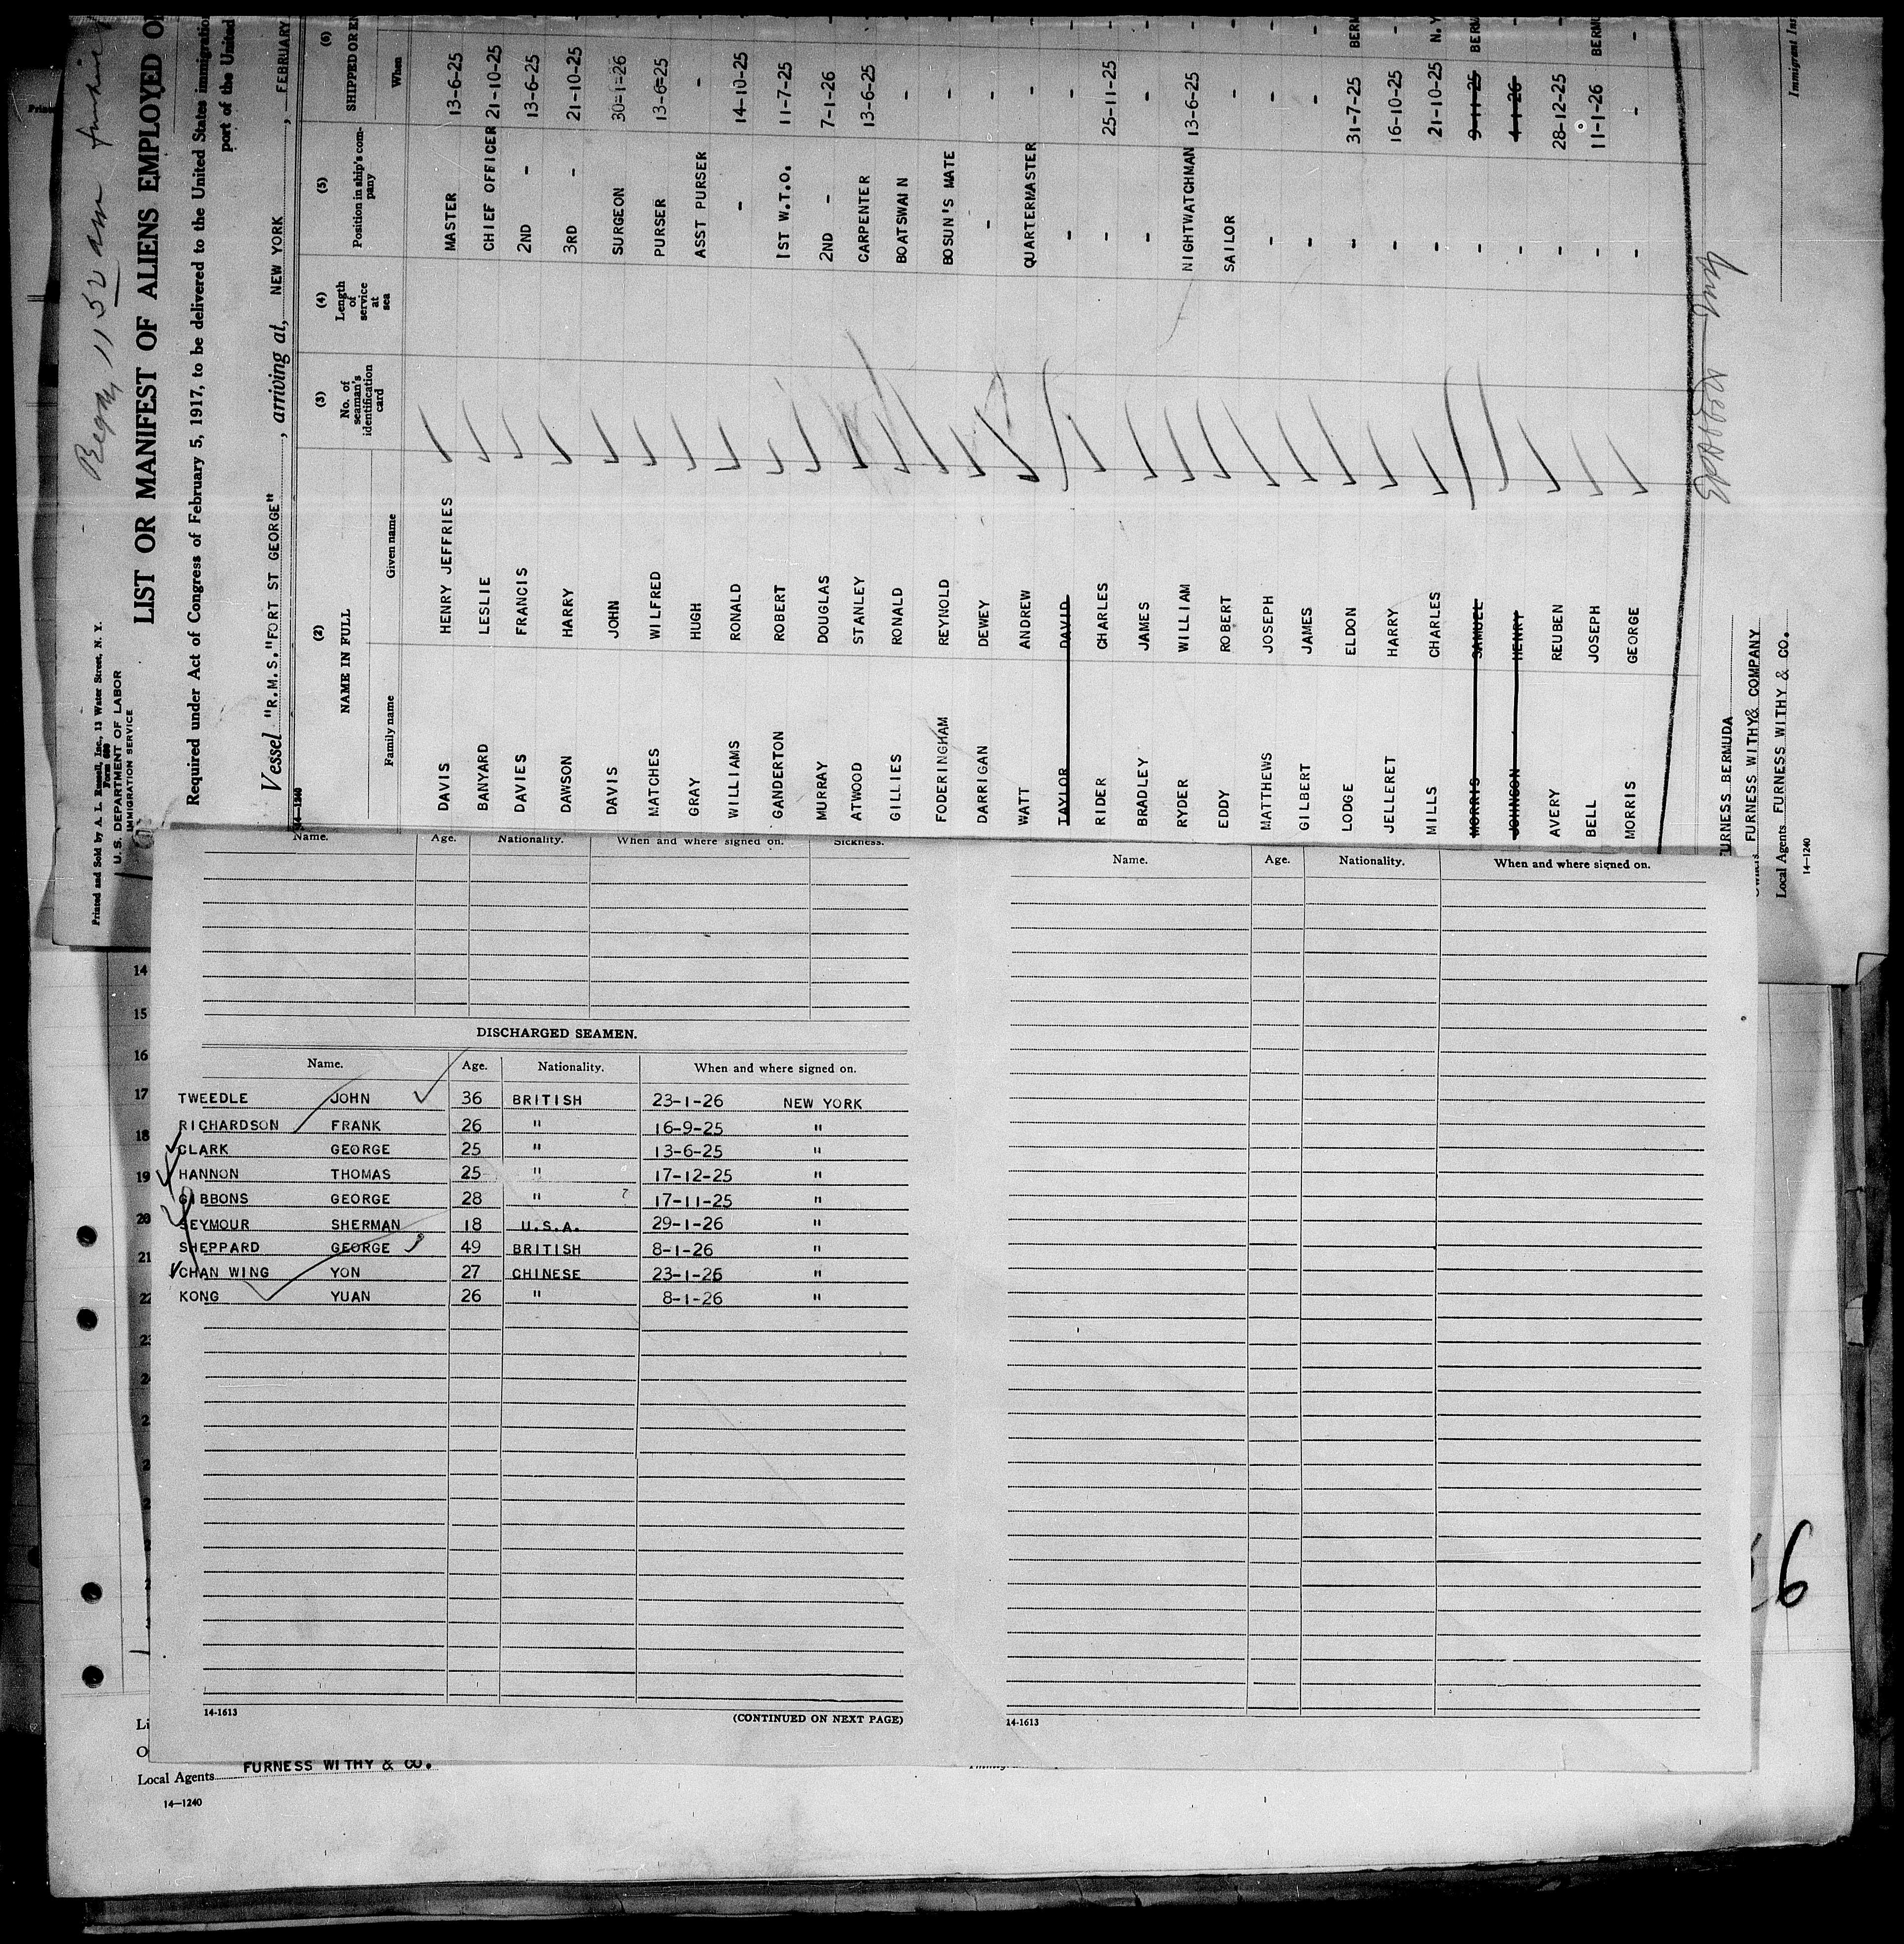 Printed and Sold by A. L. Russell, Inc., 13 Water Street, N. Y.
Form 680
U. S. DEPARTMENT OF LABOR
IMMIGRATION SERVICE
11 52 am
LIST OR MANIFEST OF ALIENS EMPLOYED O
Required under Act of Congress of February 5, 1917, to be delivered to the United States immigratio
port of the United
Vessel "R.M.S."FORT ST GEORGE" , arriving at, NEW YORK , FEBRUARY
14—1240
(2) (3) (4) (5) (6)
NAME IN FULL No. of seaman's identification card Length of service at sea Position in ship's company SHIPPED OR EN
Family name Given name When
DAVIS HENRY JEFFRIES MASTER 13-6-25 -
BANYARD LESLIE CHIEF OFFICER 21-10-25 -
DAVIES FRANCIS 2ND - 13-6-25 -
DAWSON HARRY 3RD - 21-10-25 -
DAVIS JOHN SURGEON 30-1-26 -
MATCHES WILFRED PURSER 13-6-25 -
GRAY HUGH ASST PURSER - -
WILLIAMS RONALD - 14-10-25 -
GANDERTON ROBERT 1ST W.T.O. 11-7-25 -
MURRAY DOUGLAS 2ND - 7-1-26 -
ATWOOD STANLEY CARPENTER 13-6-25 -
GILLIES RONALD BOATSWAIN - -
FODERINGHAM REYNOLD BOSUN'S MATE - -
DARRIGAN DEWEY - - -
WATT ANDREW QUARTERMASTER - -
TAYLOR DAVID - - -
RIDER CHARLES - 25-11-25 -
BRADLEY JAMES - - -
RYDER WILLIAM NIGHTWATCHMAN 13-6-25 -
EDDY ROBERT SAILOR - -
MATTHEWS JOSEPH - - -
GILBERT JAMES - - -
LODGE ELDON - 31-7-25 BERM
JELLERET HARRY - 16-10-25 -
MILLS CHARLES - 21-10-25 N.Y
MORRIS SAMUEL - 9-11-25 BERM
JOHNSON HENRY - 4-1-26 -
AVERY REUBEN - 28-12-25 -
BELL JOSEPH - 11-1-26 BERMU
MORRIS GEORGE - - -
URNESS BERMUDA
FURNESS WITHY& COMPANY
Local Agents FURNESS WITHY & CO.
14—1240
Immigrant Ins
Name. Age. Nationality. When and where signed on. Sickness.
DISCHARGED SEAMEN.
Name. Age. Nationality. When and where signed on.
TWEEDLE JOHN 36 BRITISH 23-1-26 NEW YORK
RICHARDSON FRANK 26 " 16-9-25 "
CLARK GEORGE 25 " 13-6-25 "
HANNON THOMAS 25 " 17-12-25 "
GIBBONS GEORGE 28 " 17-11-25 "
SEYMOUR SHERMAN 18 U.S.A. 29-1-26 "
SHEPPARD GEORGE 49 BRITISH 8-1-26 "
CHAN WING YON 27 CHINESE 23-1-26 "
KONG YUAN 26 " 8-1-26 "
14-1613
(CONTINUED ON NEXT PAGE)
Name. Age. Nationality. When and where signed on.
14-1613
14
15
16
17
18
19
20
21
22
23
6
Li
O
Local Agents FURNESS WITHY & CO.
14—1240